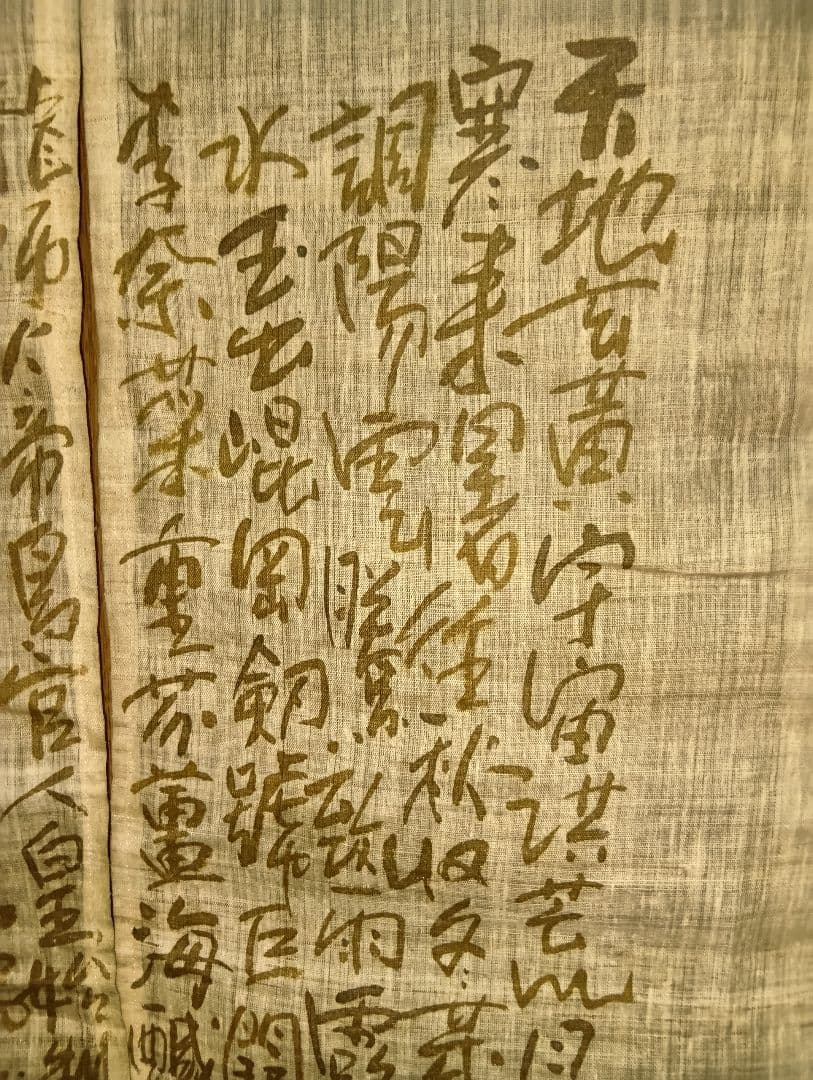 天地玄黃宇宙洪荒日
寒來暑往秋收冬藏
調陽雲騰致雨露
水玉出崐岡劍號巨闕
李柰菜重芥薑海鹹
師火帝鳥官人皇始制